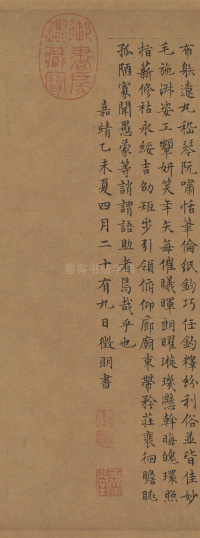 布躲遼丸嵇琴阮嘯恬筆倫紙鈞巧任釣釋紛利俗並皆佳妙
毛施淑姿工顰妍笑年矢每催曦暉朗曜璇璣懸斡晦魄環照
指薪修祜永綏吉劭矩步引領俯仰廊廟束帶矜莊裵徊瞻眺
孤陋寡聞愚蒙等誚謂語助者焉哉乎也
嘉靖乙未夏四月二十有九日徵明書
御書房鑑藏寶